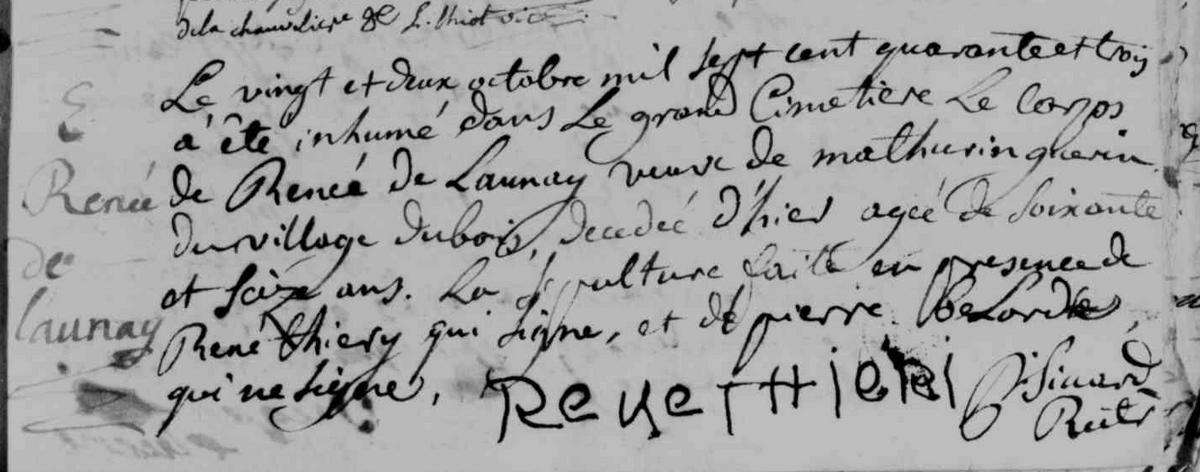 de la chauviliere &c L. thiot vic
Le vingt et deux octobre mil sept cent quarante et troiz
a été inhumé dans Le grand Cimetiere Le Corps
Renée de Renée de Launay veuve de mathurin guerin
du village dubois, decedeé d'hier ageé de soixante
de
et seize ans. La sepulture faite en presence de
launay
René thiery qui signe, et de pierre
qui ne signe, Rene THieRi